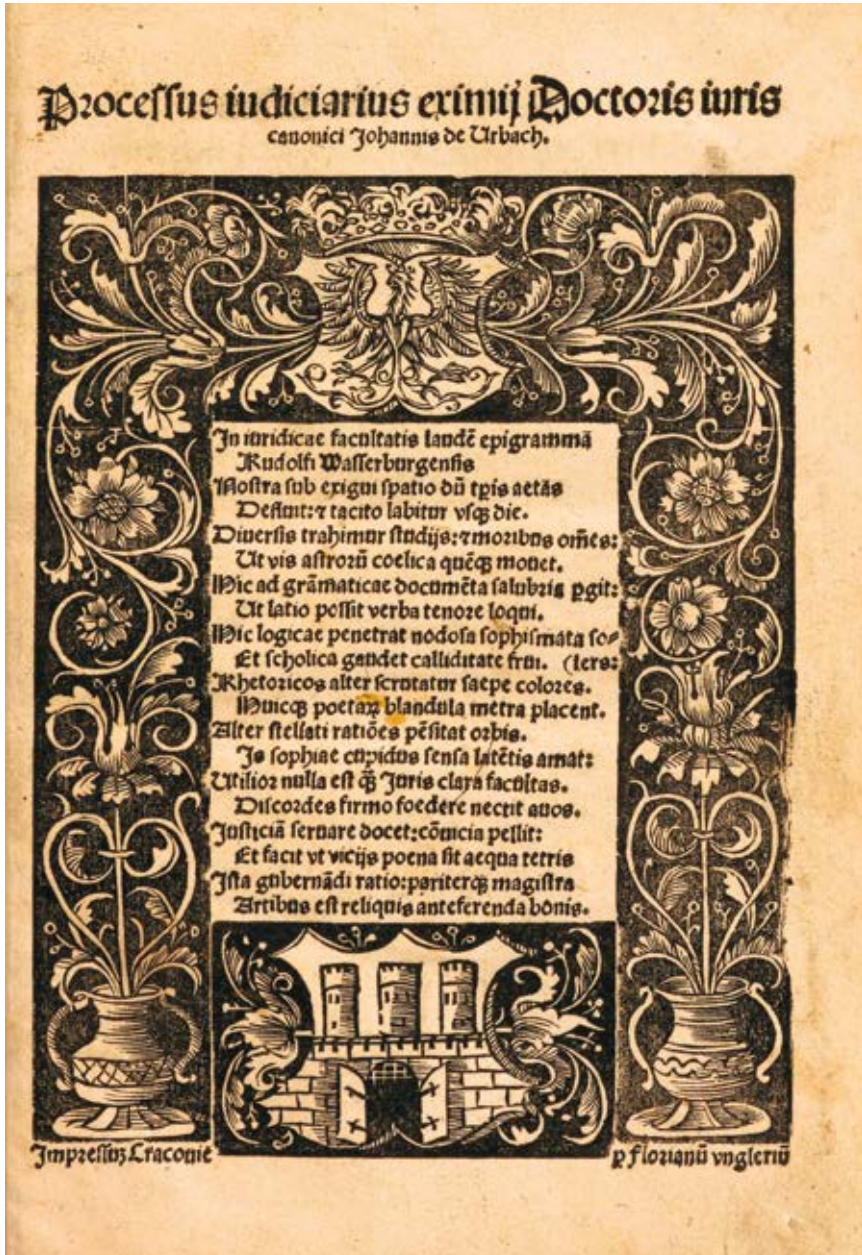 Processus iudiciarius eximij Doctoris iuris
canonici Johannis de Urbach.
In iuridicae facultatis laudē epigrammā
Rudolfi Wasserburgensis
Nostra sub exigui spatio dū tp̄is aetas
Defluit: ⁊ tacito labitur vsq̃ die.
Diuersis trahimur studijs: ⁊ moribus om̄es:
Ut vis astrorū coelica quēq̃ mouet.
Hic ad grāmaticae documēta salubria ꝑgit:
Ut latio possit verba tenore loqui.
Hic logicae penetrat nodosa sophismata so⸗
Et scholica gaudet calliditate frui. (lers:
Rhetoricos alter scrutatur saepe colores.
Huicq̃ poetaꝝ blandula metra placent.
Alter stellati ratiōes pēsitat orbis.
Is sophiae cupidus sensa latētis amat:
Utilior nulla est q̃ꝫ Juris clara facultas.
Discordes firmo foedere nectit auos.
Justiciā seruare docet: cōuicia pellit:
Et facit vt vicijs poena sit aequa tetris
Ista gubernādi ratio: pariterq̃ magistra
Artibus est reliquis anteferenda bonis.
Impressuꝫ Cracouie ꝑ Florianū vngleriū